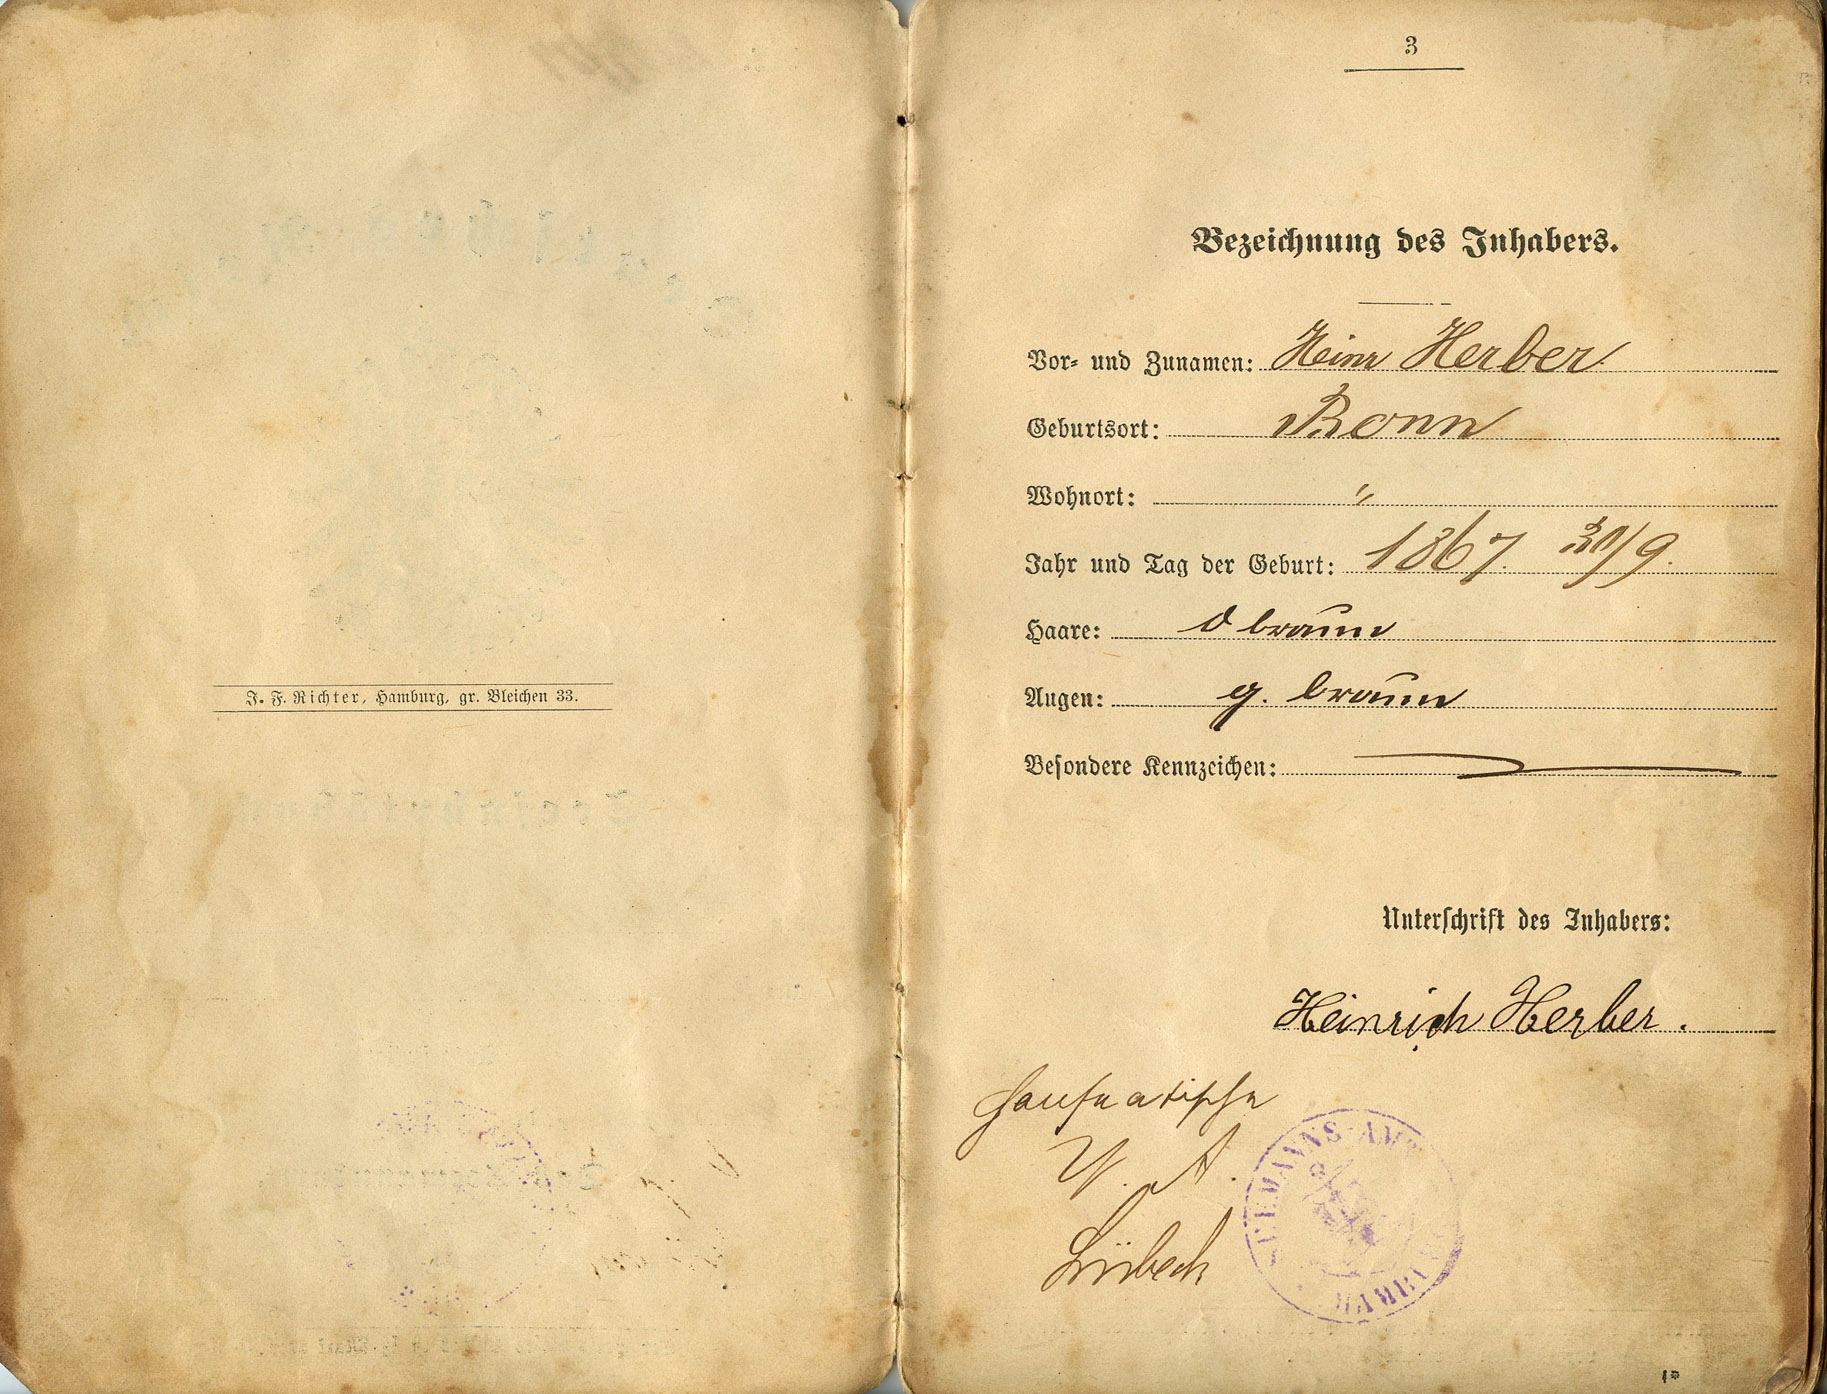 J. F. Richter, Hamburg, gr. Bleichen 33.
3
Bezeichnung des Inhabers.
Vor- und Zunamen: Heinr Herber
Geburtsort: Bonn
Wohnort: "
Jahr und Tag der Geburt: 1867. 30/9.
Haare: d braun
Augen: g. braun
Besondere Kennzeichen:
Unterschrift des Inhabers:
Heinrich Herber.
Lübeck
SEEMANNS-AMT
HAMBURG
1*